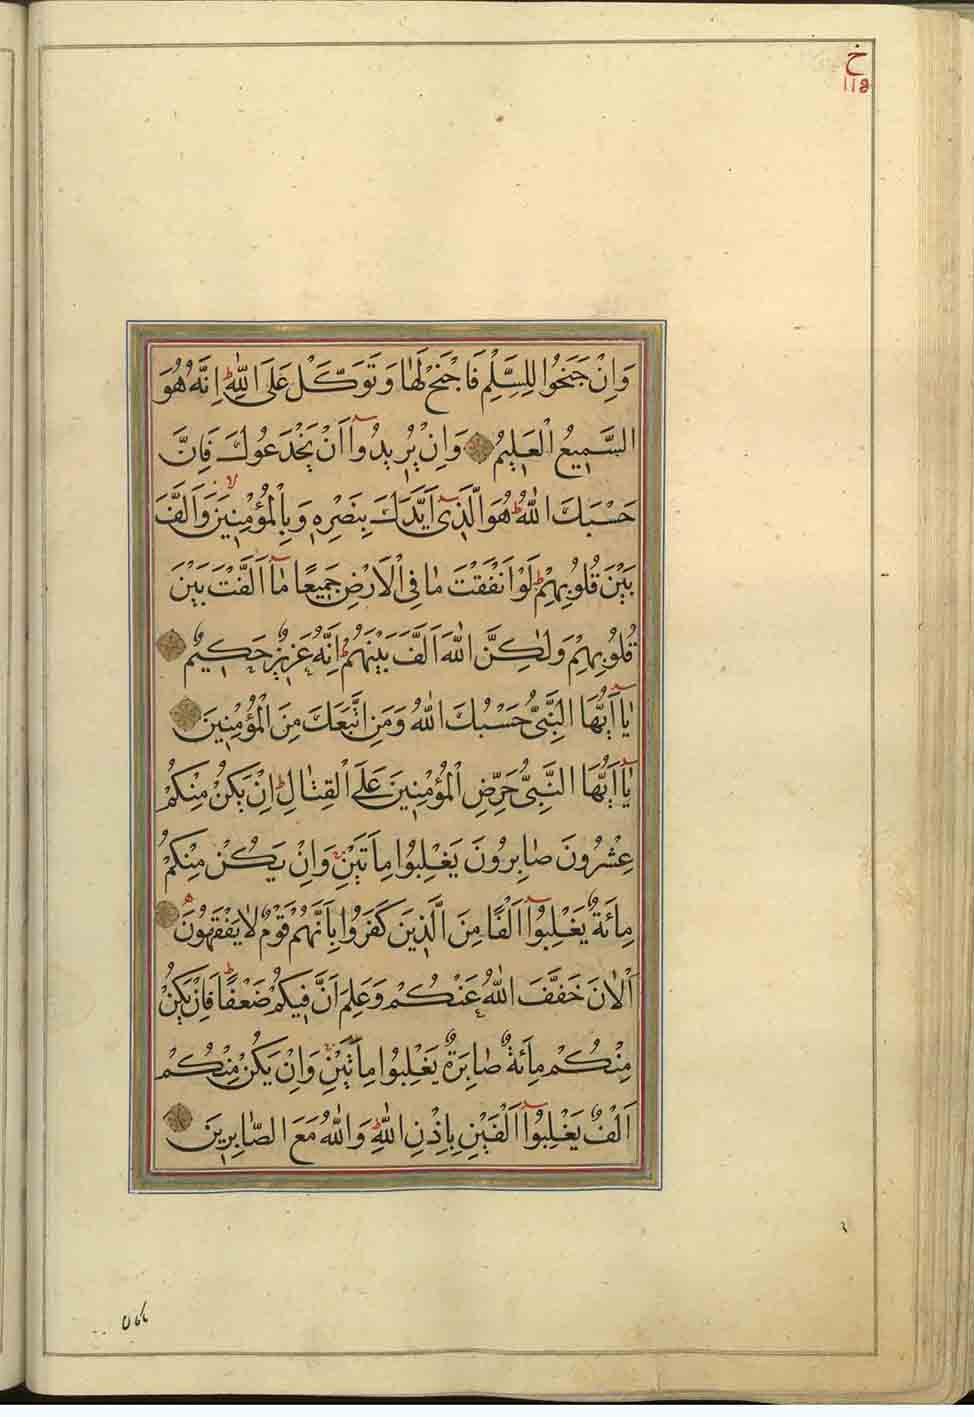 خ
١١٥
وَاِنْ جَنَحُوا لِلسَّلْمِ فَاجْنَحْ لَهَا وَتَوَكَّلْ عَلَى اللّٰهِ ط اِنَّهُ هُوَ
السَّمِيعُ الْعَلِيمُ وَاِنْ يُرِيدُوٓا اَنْ يَخْدَعُوكَ فَاِنَّ
حَسْبَكَ اللّٰهُ ط هُوَ الَّذِىٓ اَيَّدَكَ بِنَصْرِهِ وَبِالْمُؤْمِنِينَ لا وَاَلَّفَ
بَيْنَ قُلُوبِهِمْ ط لَوْ اَنْفَقْتَ مَا فِى الْاَرْضِ جَمِيعًا مَآ اَلَّفْتَ بَيْنَ
قُلُوبِهِمْ وَلٰكِنَّ اللّٰهَ اَلَّفَ بَيْنَهُمْ ط اِنَّهُ عَزِيزٌ حَكِيمٌ
يَآ اَيُّهَا النَّبِىُّ حَسْبُكَ اللّٰهُ وَمَنِ اتَّبَعَكَ مِنَ الْمُؤْمِنِينَ
يَآ اَيُّهَا النَّبِىُّ حَرِّضِ الْمُؤْمِنِينَ عَلَى الْقِتَالِ ط اِنْ يَكُنْ مِنْكُمْ
عِشْرُونَ صَابِرُونَ يَغْلِبُوا مِاَتَيْنِ ج وَاِنْ يَكُنْ مِنْكُمْ
مِائَةٌ يَغْلِبُوٓا اَلْفًا مِنَ الَّذِينَ كَفَرُوا بِاَنَّهُمْ قَوْمٌ لَا يَفْقَهُونَ
اَلْاٰنَ خَفَّفَ اللّٰهُ عَنْكُمْ وَعَلِمَ اَنَّ فِيكُمْ ضَعْفًا ط فَاِنْ يَكُنْ
مِنْكُمْ مِائَةٌ صَابِرَةٌ يَغْلِبُوا مِاَتَيْنِ ج وَاِنْ يَكُنْ مِنْكُمْ
اَلْفٌ يَغْلِبُوٓا اَلْفَيْنِ بِاِذْنِ اللّٰهِ ط وَاللّٰهُ مَعَ الصَّابِرِينَ